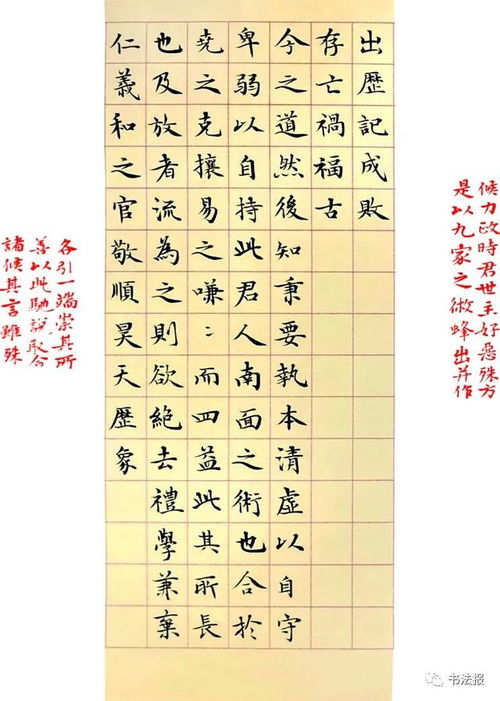 候力政時君世主好惡殊方
是以九家之術蜂出并作
出歷記成敗
存亡禍福古
今之道然後知秉要執本清虛以自守
卑弱以自持此君人南面之術也合於
堯之克攘易之嗛〻而四益此其所長
也及放者流為之則欲絕去禮學兼棄
仁義和之官敬順昊天歷象
各引一端崇其所
善以此馳說取合
諸候其言雖殊
书法报